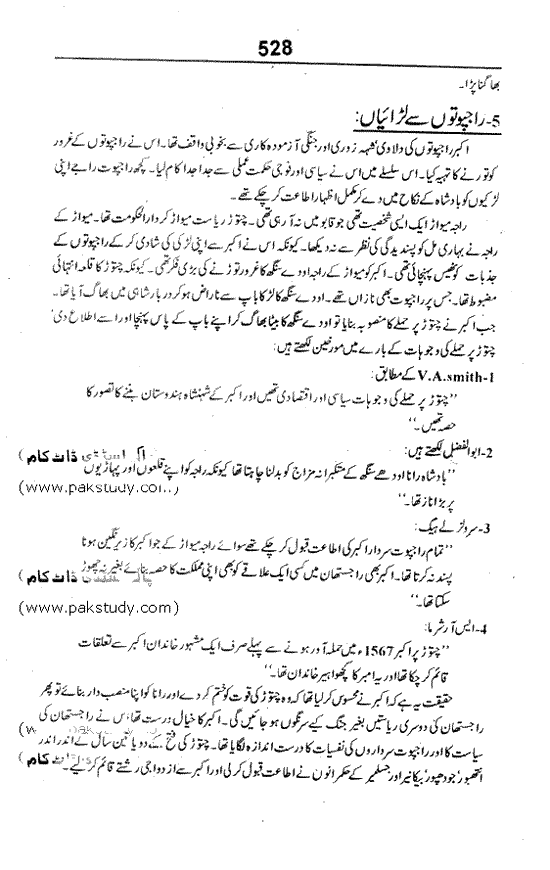 528
بھاگنا پڑا۔
5-راجپوتوں سے لڑائیاں:
اکبر راجپوتوں کی دلاوی شہہ زوری اور جنگی آزمودہ کاری سے بخوبی واقف تھا۔ اس نے راجپوتوں کے غرور
کو توڑنے کا تہیہ کیا۔ اس سلسلے میں اس نے سیاسی اور فوجی حکمت عملی سے جدا جدا کام لیا۔ کچھ راجپوت راجے اپنی
لڑکیوں کو بادشاہ کے نکاح میں دے کر مکمل اظہار اطاعت کر چکے تھے۔
راجہ میواڑ ایک ایسی شخصیت تھی جو قابو میں نہ آ رہی تھی۔ چتوڑ ریاست میواڑ کر دار الحکومت تھا۔ میواڑ کے
راجہ نے بہاری مل کو پسندیدگی کی نظر سے نہ دیکھا۔ کیونکہ اس نے اکبر سے اپنی لڑکی کی شادی کر کے راجپوتوں کے
جذبات کو ٹھیس پہنچائی تھی۔ اکبر کو میواڑ کے راجہ اودے سنگھ کا غرور توڑنے کی بڑی فکر تھی۔ کیونکہ چتوڑ کا قلعہ انتہائی
مضبوط تھا۔ جس پر راجپوت بھی نازاں تھے۔ اودے سنگھ کا لڑکا باپ سے ناراض ہو کر دربار شاہی میں بھاگ آیا تھا۔
جب اکبر نے چتوڑ پر حملے کا منصوبہ بنایا تو اودے سنگھ کا بیٹا بھاگ کر اپنے باپ کے پاس پہنچا اور اسے اطلاع دی'
چتوڑ پر حملے کی وجوہات کے بارے میں مورخین لکھتے ہیں:
1-V.A.smith کے مطابق:
''چتوڑ پر حملے کی وجوہات سیاسی اور اقتصادی تھیں اور اکبر کے شہنشاہ ہندوستان بننے کا تصور کا
حصہ تھیں۔''
2-ابوالفضل لکھتے ہیں:
ڈاٹ کام )
''بادشاہ رانا اودھے سنگھ کے متکبرانہ مزاج کو بدلنا چاہتا تھا کیونکہ راجہ کو اپنے قلعوں اور پہاڑیوں
(www.pakstudy.com)
پر بڑا ناز تھا۔''
3-سرولزلے ہیگ:
''تمام راجپوت سردار اکبر کی اطاعت قبول کر چکے تھے سوائے راجہ میواڑ کے جو اکبر کا زیر نگین ہونا
پسند نہ کرتا تھا۔ اکبر بھی راجستھان میں کسی ایک علاقے کو بھی اپنی مملکت کا حصہ بنائے بغیر نہ چھوڑ
ڈاٹ کام )
سکتا تھا۔''
(www.pakstudy.com)
4-ایس آر شرما:
''چتوڑ پر اکبر 1567ء میں حملہ آور ہونے سے پہلے صرف ایک مشہور خاندان اکبر سے تعلقات
قائم کر چکا تھا اور یہ امبر کا کچھواہیر خاندان تھا۔''
حقیقت یہ ہے کہ اکبر نے محسوس کر لیا تھا کہ وہ چتوڑ کی قوت کو ختم کر دے اور رانا کو اپنا منصب دار بنائے تو پھر
راجستھان کی دوسری ریاستیں بغیر جنگ کیے سرنگوں ہو جائیں گی۔ اکبر کا خیال درست تھا' اس نے راجستھان کی
سیاست کا اور راجپوت سرداروں کی نفسیات کا درست اندازہ لگایا تھا۔ چتوڑ کی فتح کے دو یا تین سال کے اندر اندر
انتھبور' جودھپور' بیکانیر اور جسلمیر کے حکمرانوں نے اطاعت قبول کر لی اور اکبر سے ازدواجی رشتے قائم کر لیے۔
ڈاٹ کام )